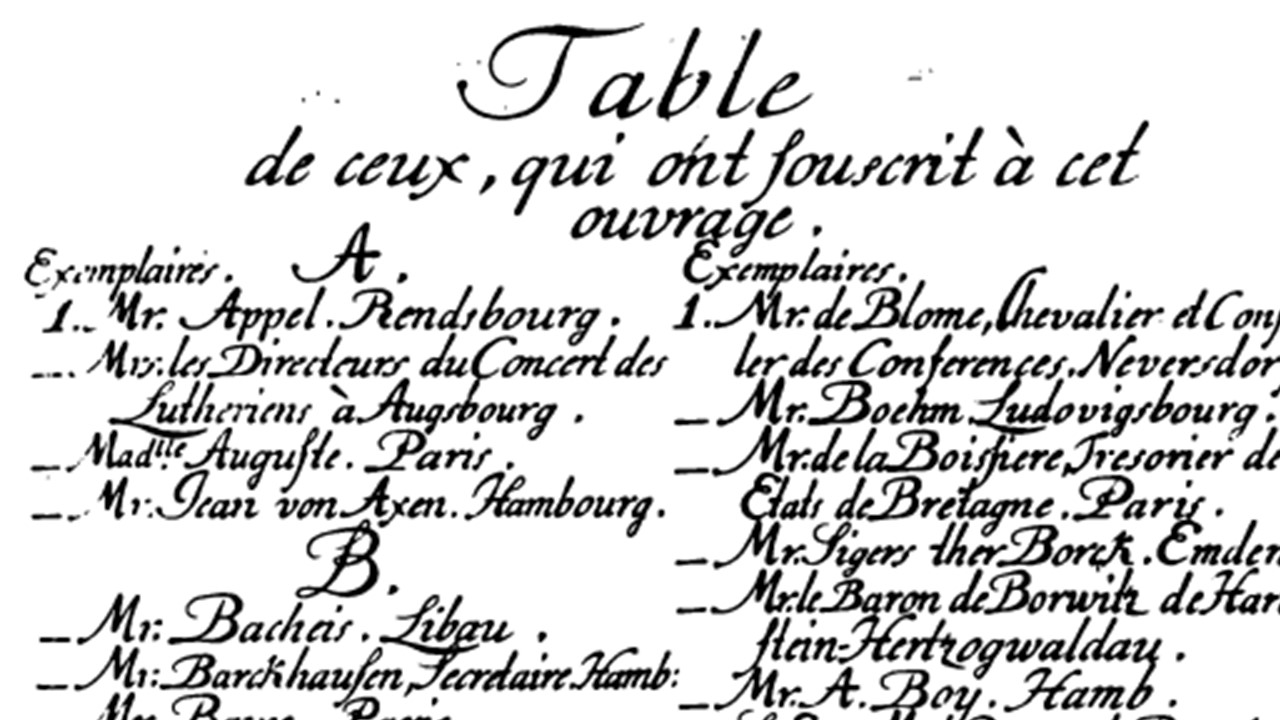 Table
de ceux, qui ont souscrit à cet
ouvrage.
Exemplaires. A.
1._ Mr. Appel. Rendsbourg.
_ Mrs. les Directeurs du Concert des
Lutheriens à Augsbourg.
_ Madlle Auguste. Paris.
_ Mr. Jean von Axen. Hambourg.
B.
_ Mr. Bacheis. Libau.
_ Mr. Barckhausen, Secretaire. Hamb:
Exemplaires.
1. Mr. de Blome, Chevalier et Con
ler des Conferences. Neversdor
_ Mr. Boehm. Ludovigsbourg.
_ Mr. de la Boissiere, Tresorier de
Etats de Bretagne. Paris.
_ Mr. Sigers ther Borck. Emden
_ Mr. le Baron de Borwitz de Har
stein-Hertzogwaldau.
_ Mr. A. Boy. Hamb.